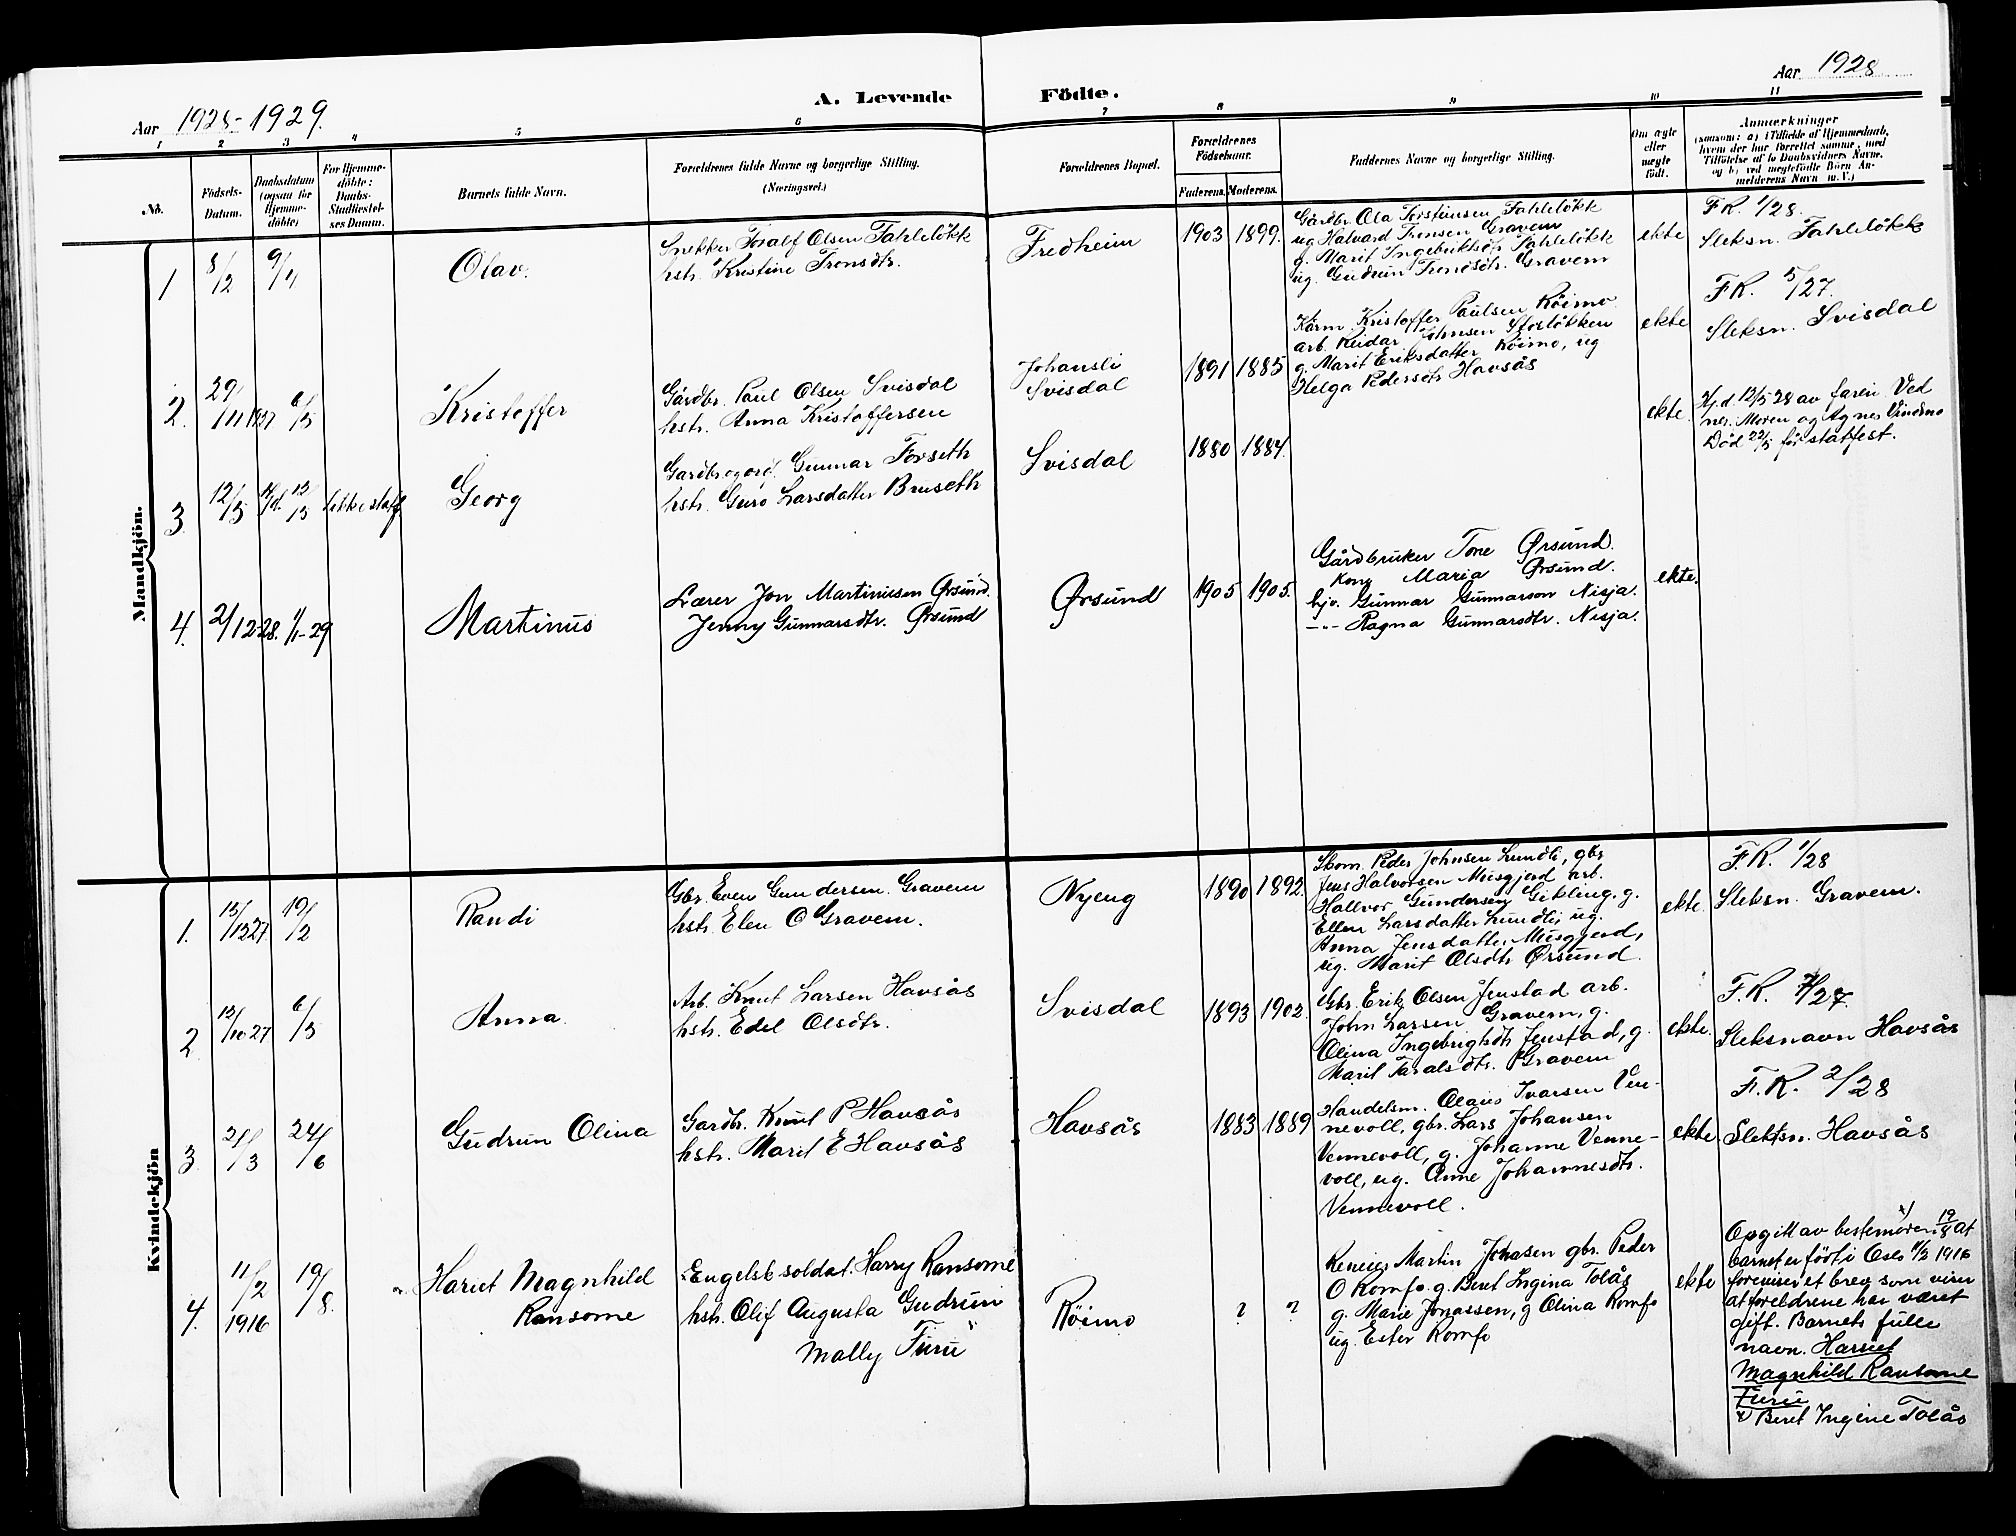 Aar 1928-1929.
A. Levende Födte.
Aar 1928
1 2 3 4 5 6 7 8 9 10 11
No.
Födsels-
Datum.
Daabsdatum
(ogsaa for
Hjemme-
döbte)
For Hjemme-
döbte:
Daabs-
Stadfæstel-
ses Datum.
Barnets fulde Navn.
Forældrenes fulde Navne og borgerlige Stilling.
(Næringsvei.)
Forældrenes Bopæl.
Forældrenes
Födselsaar.
Faderens. Moderens.
Faddernes Navne og borgerlige Stilling.
Om ægte
eller
uægte
födt.
Anmærkninger
(saasom: a) i Tilfælde af Hjemmedaab,
hvem der har forrettet samme, med
Tilföielse af to Daabsvidners Navne,
og b) ved uægtefödte Börn An-
melderens Navn o. V.)
Mandkjön.
1 8/2 9/4 Olav.
Snekker Toralf Olsen Fahlelökk
hstr. Kristine Tronsdtr.
Fredheim 1903 1899.
Gårdbr. Ola Torstensen Fahlelökk
ug. Halvard Tronsen Gravem
g. Marit Ingebriktsdtr. Fahlelökk
ug. Gudrun Tronsdtr. Gravem
ekte
F.R. 1/28.
Sleksn. Fahlelökk
2. 29/11 1927 6/5 Kristoffer
Gårdbr. Paul Olsen Svisdal
hstr. Anna Kristoffersen
Johansli
Svisdal
1891 1885
Kårm. Kristoffer Paulsen Röimo
arb. Reidar Johnsen Storlökken
g. Marit Eriksdatter Röimo, ug
Helga Pedersdtr Havsås
ekte
F.R. 5/27.
Sleksn. Svisdal
3 12/5 Hjd. 12/5 ikke staf. Georg
Gardbr og ord. Gunnar Forseth
hstr. Guro Larsdatter Bruseth
Svisdal 1880 1884
ekte.
Hj.d. 12/5 28 av faren Ved
ner. Moren og Agnes Vindmo
Död 22/5 för statfest.
4. 2/12-28. 1/1-29 Martinus
Lærer Jon Martinusen Ørsund.
Jenny Gunnarsdtr. Ørsund
Ørsund 1905 1905.
Gårdbruker Tone Ørsund.
Kone Maria Ørsund.
hjv. Gunnar Gunnarson Nisja.
--- Ragna Gunnarsdtr. Nisja.
ekte.
Kvindekjön
1. 15/12 27 19/2 Randi
Gbr. Even Gundersen Gravem
hstr. Elen O Gravem.
Nyeng 1890 1892.
Skom. Peder Johnsen Lundli, gbr
Jens Halvorsen Musgjerd arb.
Hallvor Gundersen Gikling, g.
Ellen Larsdatter Lundli, ug.
Anna Jensdatter Musgjerd,
ug. Marit Olsdtr Ørsund.
ekte.
F.R. 1/28
Sleksn. Gravem.
2 13/10 27 6/5 Anna.
Arb. Knut Larsen Havsås
hstr. Edel Olsdtr.
Svisdal 1893 1902.
Gbr. Erik Olsen Jenstad arb.
John Larsen Gravem, g.
Olina Ingebrigtsdtr Jenstad, g.
Marit Taralsdtr. Gravem
ekte.
F.R. 4/27.
Sleksnavn Havsås
3 21/3 24/6 Gudrun Olina
Gardbr. Knut P Havsås
hstr. Marit E Havsås
Havsås 1883 1889
Handelsm. Olaus Ivarsen Ven-
nevoll, gbr. Lars Johansen
Vennevoll, g. Johanne Venne-
voll, ug. Anne Johannesdtr.
Vennevoll.
ekte.
F.R. 2/28
Slektsn. Havsås
4. 11/2 1916 19/8. Hariet Magnhild
Ransome
Engelsk soldat. Harry Ransome
hstr. Olif Augusta Gudrun
Mally Furu
Röimo ? ?
Martin Johasen gbr. Peder
O Romfo g. Beret Ingina Tolås
g. Marie Jonassen, g Olina Romfo
ug. Ester Romfo
ekte
Opgitt av bestemoren x) 19/8 at
barnet er född i Oslo 11/2 1916
foreviser et brev som viser
at foreldrene har været
gift. Barnets fulle
navn. Harriet
Magnhild Ransome
Furu
x) Beret Ingine Tolås